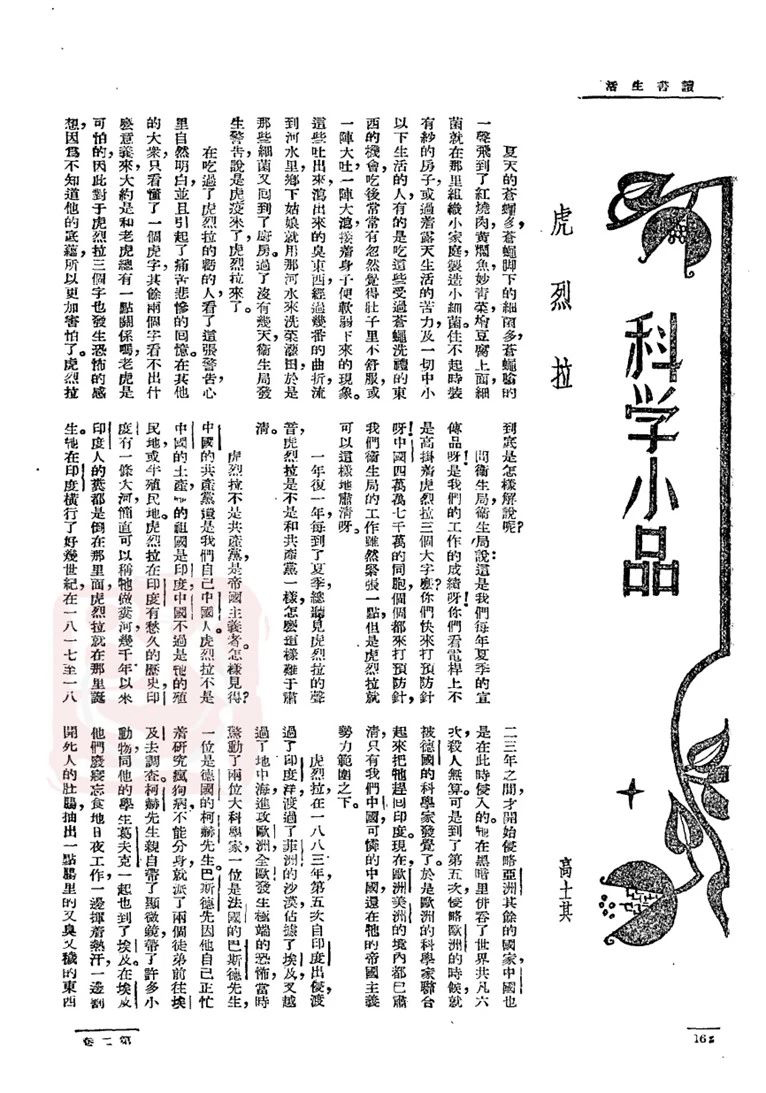 讀書生活
科学小品
虎烈拉
高士其
夏天的蒼蠅多，蒼蠅脚下的細菌多，蒼蠅嗡的
一聲飛到了紅燒肉，黃燜魚，炒青菜，燴豆腐上面，細
菌就在那里組織小家庭，製造小細菌。住不起時裝
有紗的房子，或過着露天生活的苦力，及一切中小
以下生活的人，有的是吃這些受過蒼蠅洗禮的東
西的機會，吃後常常有忽然覺得肚子里不舒服，或
一陣大吐，一陣大瀉，接着身子便軟弱下來的現象。
這些吐出來，瀉出來的臭東西，經過幾番的曲折，流
到河水里，鄉下姑娘就用那河水來洗菜灌田，於是
那些細菌又回到了廚房。過了沒有幾天，衛生局發
生警告，說是虎疫來了，虎烈拉來了。
在吃過了虎烈拉的虧的人，看了這張警告，心
里自然明白，並且引起了痛苦悲慘的回憶。在其他
的大衆，只看懂了一個虎字，其餘兩個字看不出什
麼意義來，大約是和老虎總有一點關係嗎，老虎是
可怕的，因此對于虎烈拉三個字也發生恐怖的感
想，因爲不知道他的底蘊，所以更加害怕了。虎烈拉
到底是怎樣解說呢？
問衛生局，衛生局說：這是我們每年夏季的宣
傳品呀！是我們的工作的成績呀！你們看電桿上不
是高掛着虎烈拉三個大字麼？你們快來打預防針
呀！中國四萬萬七千萬的同胞，個個都來打預防針，
我們衛生局的工作雖然緊張一點，但是虎烈拉就
可以這樣地肅清呀。
一年復一年，每到了夏季，總聽見虎烈拉的聲
音，虎烈拉是不是和共產黨一樣，怎麽這樣難于肅
清。
虎烈拉不是共產黨，是帝國主義者。怎樣見得？
中國的共產黨還是我們自己中國人。虎烈拉不是
中國的土產，牠的祖國是印度，中國不過是牠的殖
民地，或半殖民地。虎烈拉在印度有愁久的歷史，印
度有一條大河，簡直可以稱牠做糞河，幾千年以來
印度人的糞都是倒在那里面，虎烈拉就在那里誕
生。牠在印度橫行了好幾世紀，在一八一七至一八
二三年之間，才開始侵略亞洲其餘的國家，中國也
是在此時侵入的。牠在黑暗里併吞了世界共凡六
次，殺人無算。可是到了第五次侵略歐洲的時候，就
被德國的科學家發覺了。於是歐洲的科學家聯合
起來把牠趕回印度。現在，歐洲美洲的境內都已肅
清，只有我們中國，可憐的中國，還在牠的帝國主義
勢力範圍之下。
虎烈拉，在一八八三年，第五次自印度出發，渡
過了印度洋，渡過了菲洲的沙漠，佔據了埃及，又越
過了地中海，進攻歐洲，全歐發生極端的恐怖，當時
驚動了兩位大科學家，一位是法國的巴斯德先生，
一位是德國的柯赫先生。巴斯德先因他自己正忙
着研究瘋狗病，不能分身，就派了兩個徒弟前往埃
及去調查。柯赫先生親自帶了顯微鏡，帶了許多小
動物，同他的學生葛夫克一起也到了埃及。在埃及
他們廢寢忘食地日夜工作，一邊揮着熱汗，一邊割
開死人的肚腸，抽出一點腸里的又臭又穢的東西
第二卷